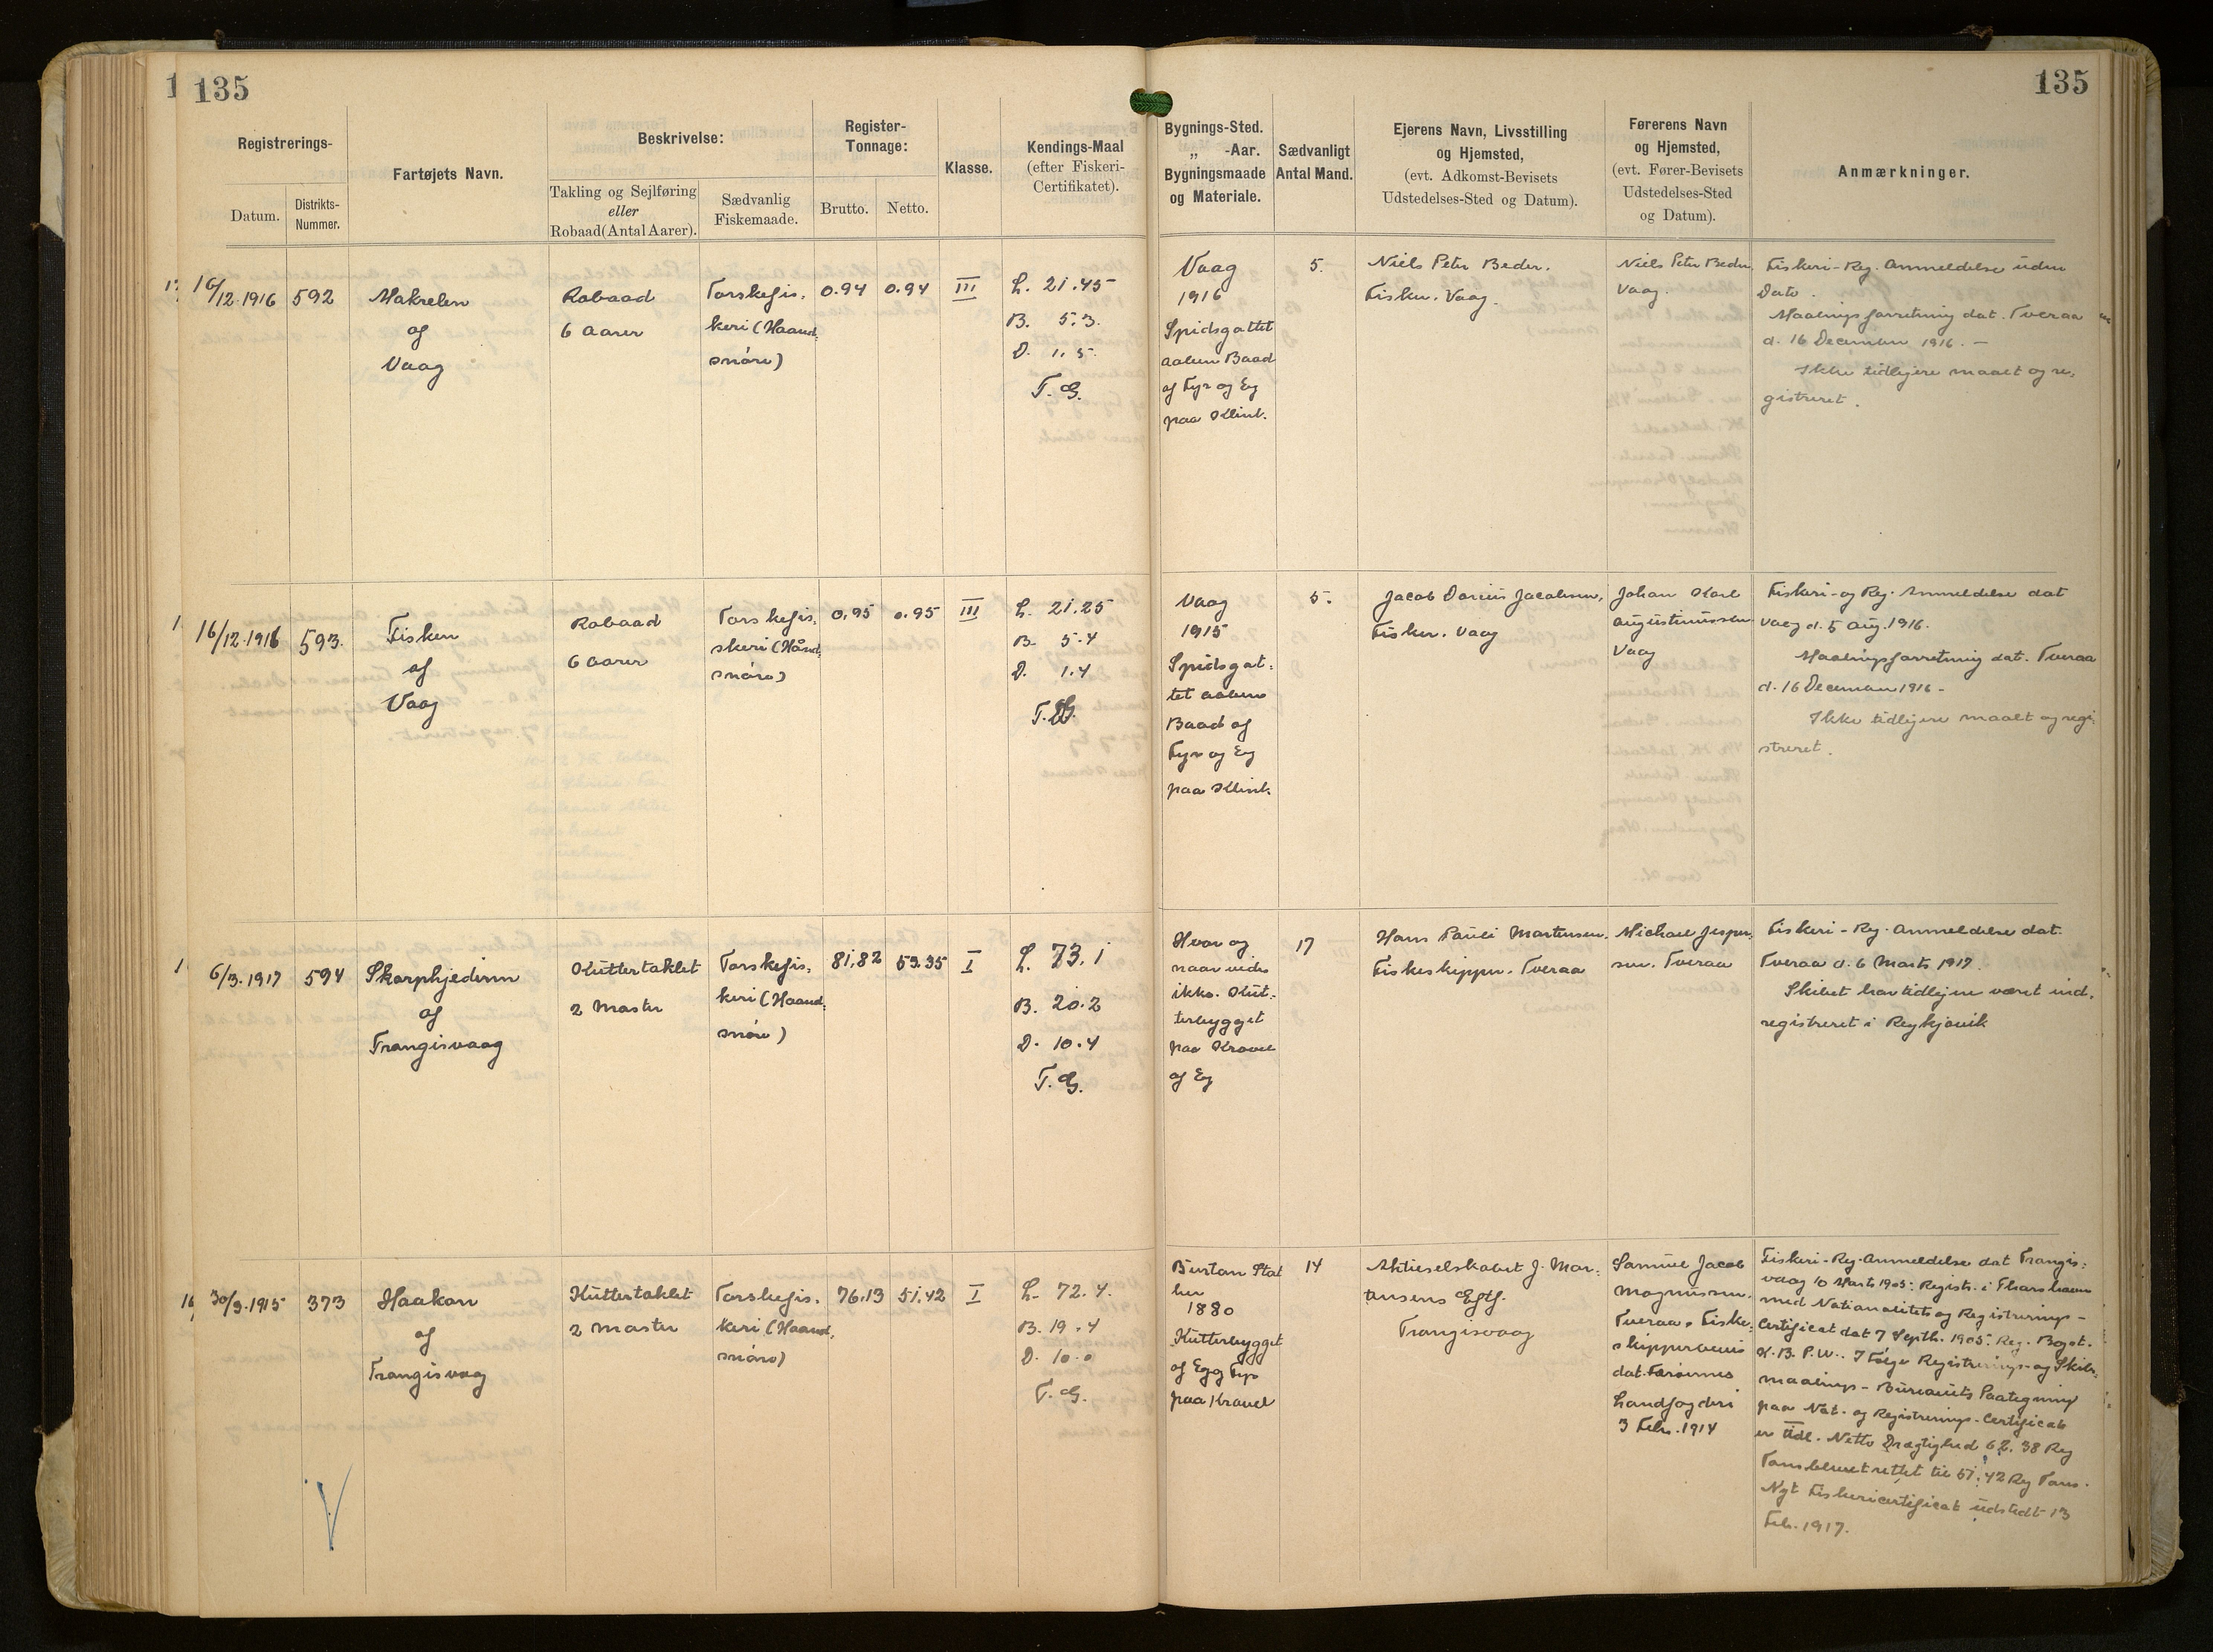 135
135
Registrerings-
Datum.
Distrikts-
Nummer.
Fartøjets Navn.
Beskrivelse:
Takling og Sejlføring
eller
Robaad (Antal Aarer).
Sædvanlig
Fiskemaade.
Register-
Tonnage:
Brutto.
Netto.
Klasse.
Kendings-Maal
(efter Fiskeri-
Certifikatet).
Bygnings-Sted.
„ -Aar.
Bygningsmaade
og Materiale.
Sædvanligt
Antal Mand.
Ejerens Navn, Livsstilling
og Hjemsted,
(evt. Adkomst-Bevisets
Udstedelses-Sted og Datum).
Førerens Navn
og Hjemsted,
(evt. Fører-Bevisets
Udstedelses-Sted
og Datum).
Anmærkninger.
16/12.1916
592
Makrelen
af
Vaag
Robaad
6 Aarer
Torskefis-
keri (Haand-
snøre)
0.94
0.94
III
L. 21.45
B. 5.3
D. 1.5
T. G.
Vaag
1916
Spidsgattet
aaben Baad
af Fyr og Eg
paa Klink.
5.
Niels Peter Beder.
Fisker. Vaag.
Niels Peter Beder,
Vaag.
Fiskeri-Reg. Anmeldelse uden
Dato.
Maalingsforretning dat. Tveraa
d. 16 December 1916. -
Ikke tidligere maalt og re-
gistreret.
16/12.1916
593.
Fisken
af
Vaag
Robaad
6 aarer
Torskefis-
skeri (Hånd-
snøre)
0.95
0.95
III
L. 21.25
B. 5.4
D. 1.4
T. G.
Vaag
1915
Spidsgat-
tet aaben
Baad af
Fyr og Eg
paa Klink.
5.
Jacob Darius Jacobsen,
Fisker. Vaag
Johan Karl
Augustinussen
Vaag
Fiskeri-og Reg. Anmeldelse dat
Vaag d. 5 Aug. 1916.
Maalingsforretning dat. Tveraa
d. 16 December 1916 -
Ikke tidligere maalt og regi-
streret.
6/3.1917
594
Skarphjedinn
af
Trangisvaag
Kuttertaklet
2 Master
Torskefis-
keri (Haand-
snøre)
81.82
53.35
I
L. 73.1
B. 20.2
D. 10.4
T. G.
Hvor og
naar vides
ikke. Kut-
terbygget
paa Kravel
af Eg
17
Hans Pauli Mortensen.
Fiskeskipper. Tveraa
Michael Jesper-
sen. Tveraa
Fiskeri-Reg. Anmeldelse dat.
Tveraa d. 6 Marts 1917.
Skibet har tidligere været ind-
registreret i Reykjavik
30/3.1915
373
Haakon
af
Trangisvaag
Kuttertaklet
2 Master
Torskefis-
keri (Haand-
snøre)
76.13
51.42
I
L. 72.4.
B. 19.4
D. 10.0
T. G.
Burton Stat
her
1880
Kutterbygget
af Eg og Fyr
paa Kravel
14
Aktieselskabet J. Mor-
tensens Eftf.
Trangisvaag
Samuel Jacob
Magnussen.
Tveraa. Fiske-
skipperbevis
dat. Færøernes
Landfogderi
3 Febr. 1914
Fiskeri-Reg. Anmeldelse dat Trangis-
vaag 10 Marts 1905: Registr. i Thorshavn
med Nationalitets og Registrerings-
Certificat dat 7 Septb. 1905. Reg. Bogst.
K.B.P.W.. I Følge Registrerings- og Skibs-
maalings-Bureauets Paategning
paa Nat. og Registrerings-Certificat
er tidl. Netto Drægtighed 62.38 Reg
Tons blevet rettet til 51.42 Reg Tons.
Nyt Fiskericertificat udstedt 13
Feb. 1917.